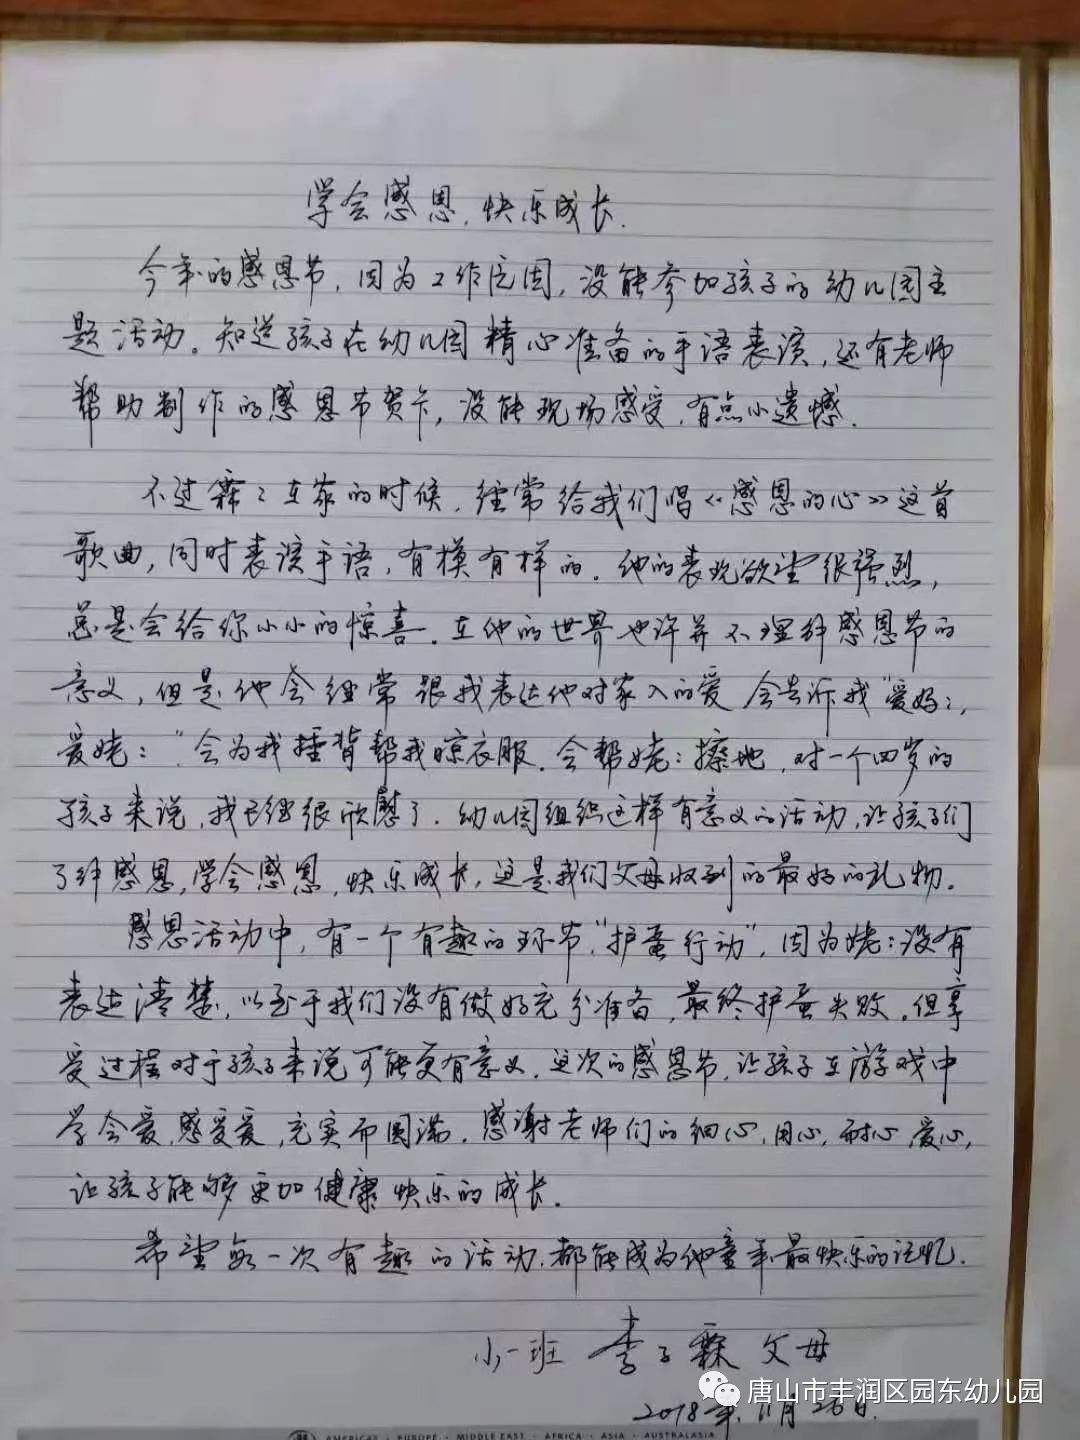 学会感恩，快乐成长.
今年的感恩节，因为工作原因，没能参加孩子的幼儿园主
题活动。知道孩子在幼儿园精心准备的手语表演，还有老师
帮助制作的感恩节贺卡，没能现场感受，有点小遗憾.
不过霖：在家的时候，经常给我们唱《感恩的心》这首
歌曲，同时表演手语，有模有样的. 他的表现欲望很强烈，
总是会给你小小的惊喜. 在他的世界也许并不理解感恩节的
意义，但是他会经常跟我表达他对家人的爱 会告诉我“爱妈：，
爱姥：”会为我捶背帮我晾衣服. 会帮姥：擦地，对一个四岁的
孩子来说，我已经很欣慰了. 幼儿园组织这样有意义的活动，让孩子们
了解感恩，学会感恩，快乐成长，这是我们父母收到的最好的礼物.
感恩活动中，有一个有趣的环节，“护蛋行动”，因为姥：没有
表达清楚，以至于我们没有做好充分准备，最终护蛋失败. 但享
受过程对于孩子来说可能更有意义. 这次的感恩节，让孩子在游戏中
学会爱，感受爱，充实而圆满. 感谢老师们的细心，用心，耐心，爱心，
让孩子能够更加健康快乐的成长.
希望每一次有趣的活动，都能成为他童年最快乐的记忆.
小一班 李子霖 父母
2018年11月26日.
唐山市丰润区园东幼儿园
AMERICAS · EUROPE · MIDDLE EAST · AFRICA · ASIA · AUSTRALASIA